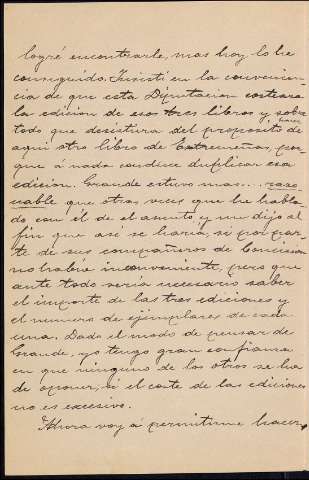 logré encontrarle, mas hoy lo he
conseguido. Insistí en la convenien-
cia de que esta Diputacion costeara
la edicion de esos tres libros y sobre
todo que desistiera del proposito de hacer
aqui otro libro de Extremeñas, por-
que á nada conduce duplicar esa
edicion. Grande estuvo mas... razo-
nable que otras veces que he habla-
do con él de el asunto y me dijo al
fin que asi se haria, si por par-
te de sus compañeros de Comision
no habia inconveniente, pero que
ante todo seria necesario saber
el importe de las tres ediciones y
el numero de ejemplares de cada
una. Dado el modo de pensar de
Grande, yo tengo gran confianza
en que ninguno de los otros se ha
de oponer, si el coste de las ediciones
no es excesivo.
Ahora voy á permitirme hacer